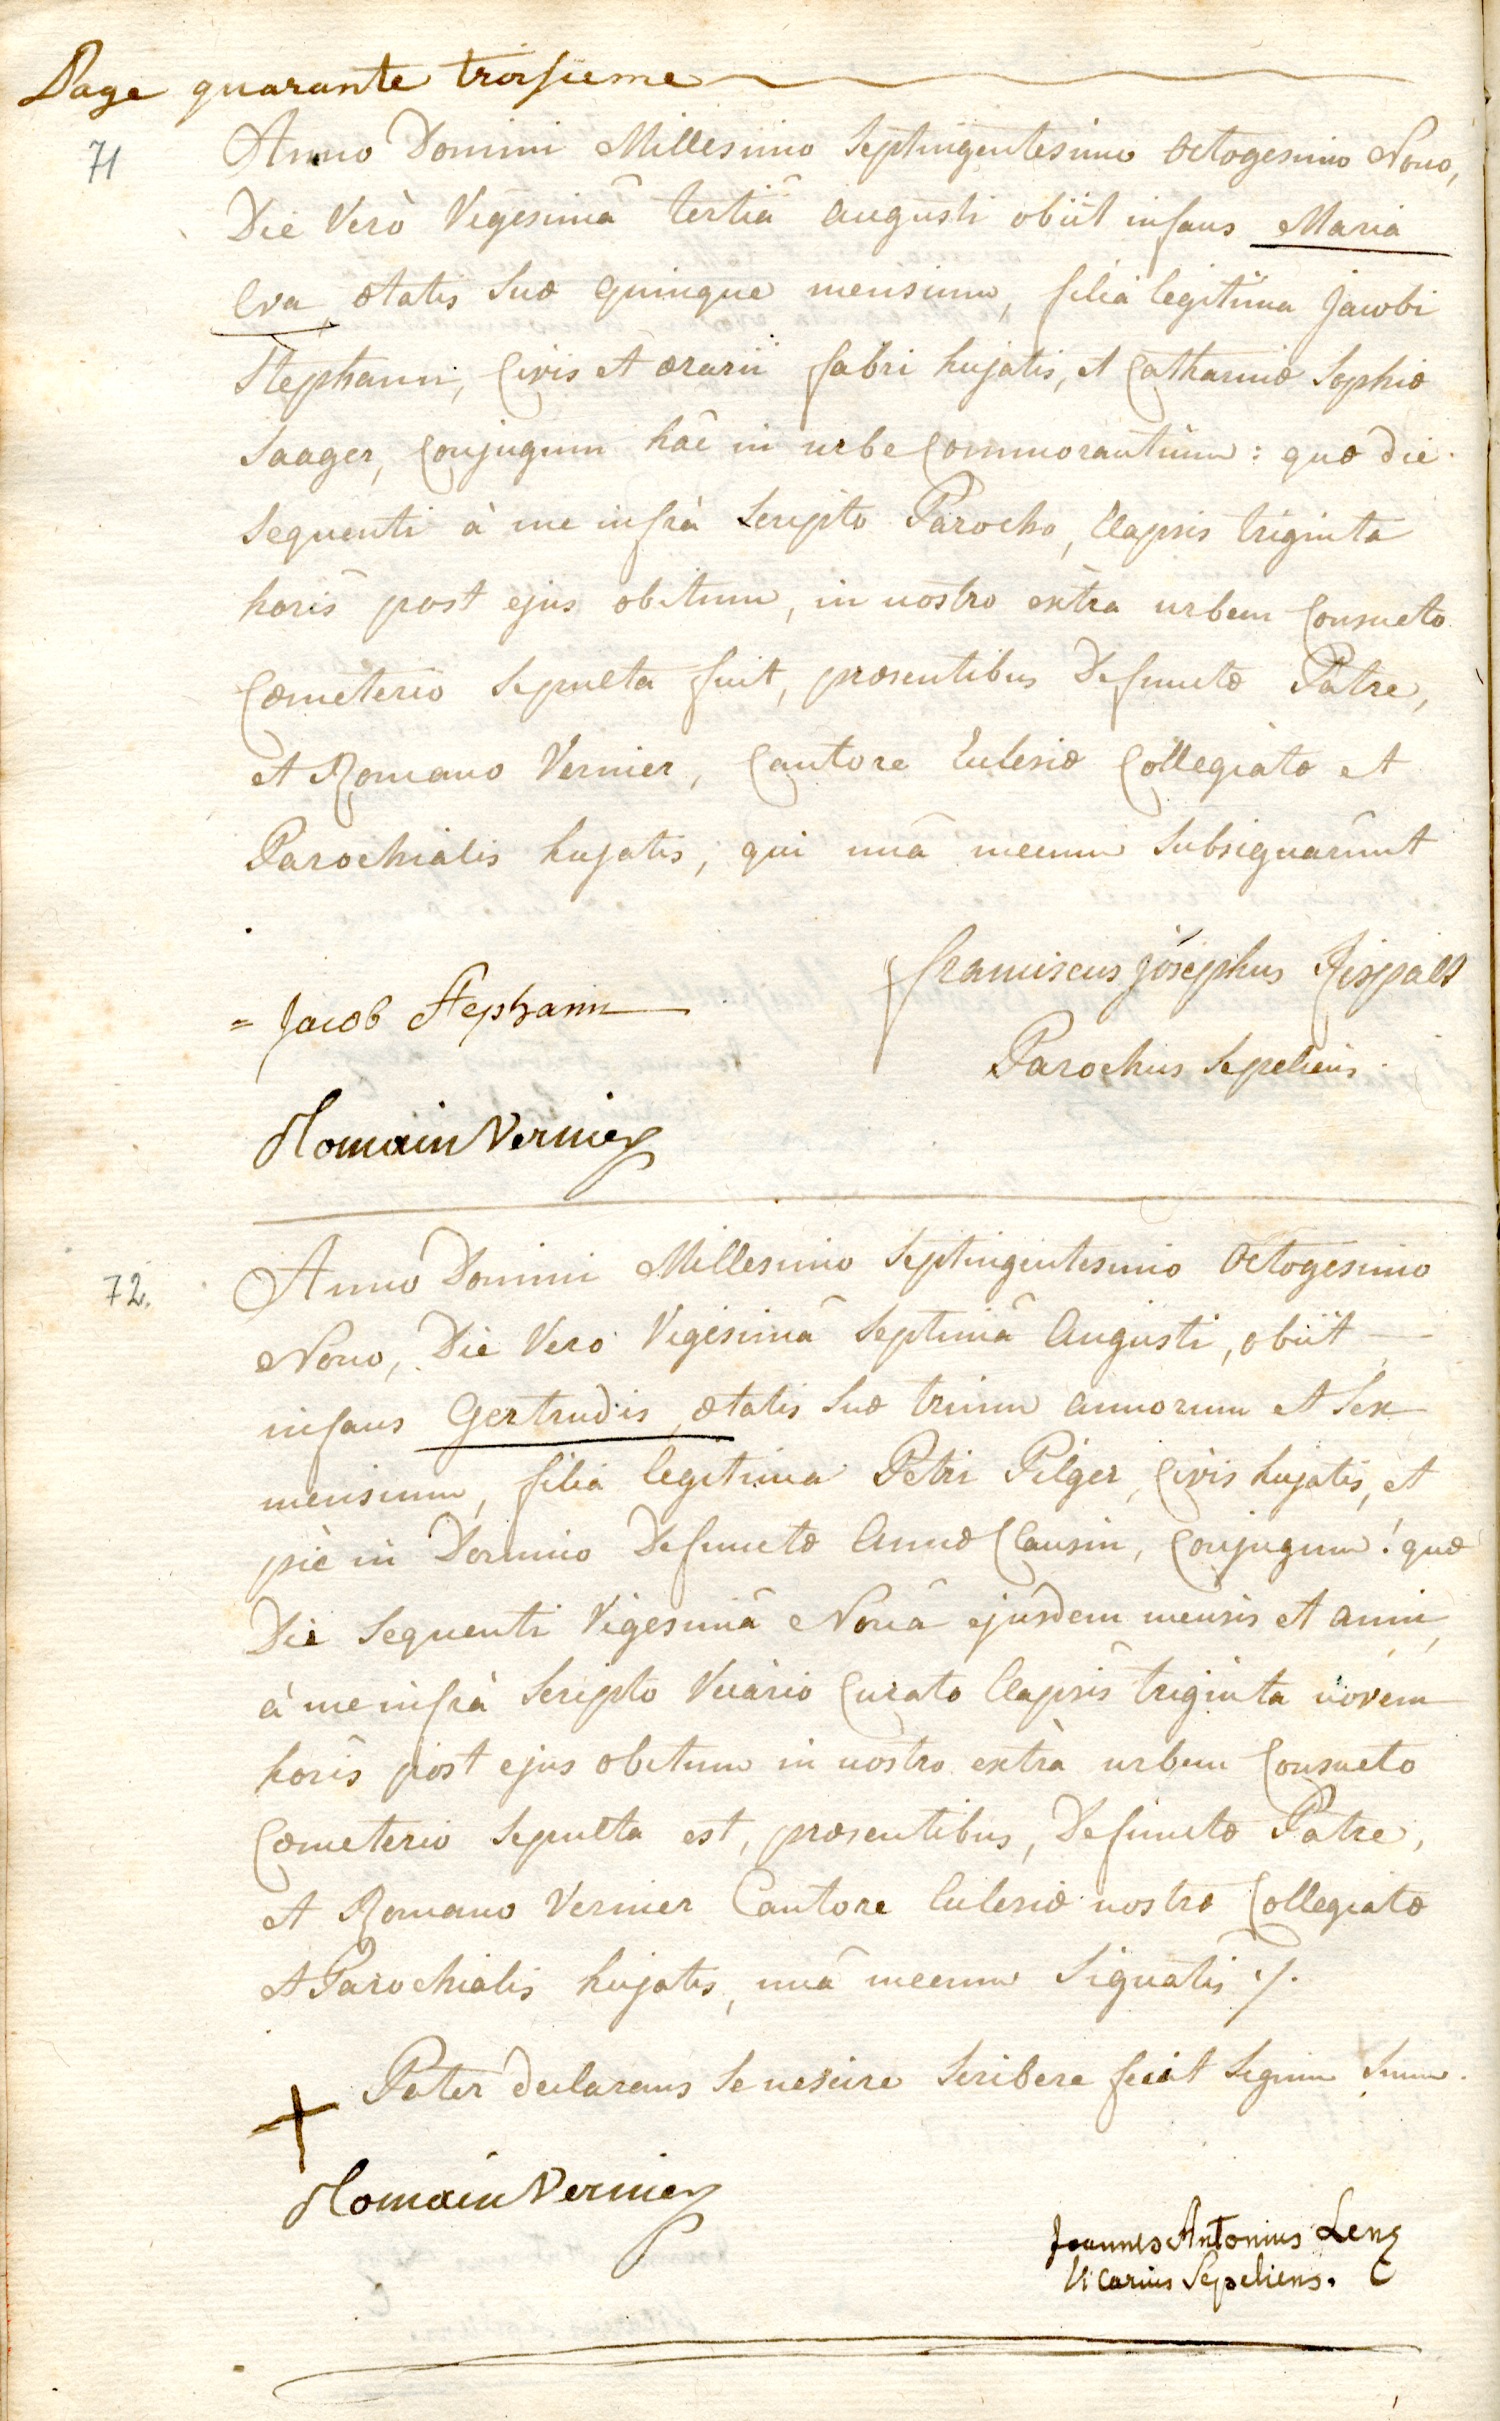 Page quarante troisieme
71
Anno Domini Millesimo Septingentesimo octogesimo Nono,
Die Verò Vigesimâ tertiâ augusti obiit infans Maria
Eva, ætatis suæ quinque mensium, filia legitima Jacobi
Stephann, Civis et ærarii fabri hujatis, et Catharinæ Sophiæ
Saager, Conjugum hac in urbe Commorantium: quæ die
sequenti à me infrà scripto Parocho, Elapsis triginta
horis post ejus obitum, in nostro extra urbem Consueto
Cœmeterio sepulta fuit, præsentibus Defunctæ Patre,
et Romano Vernier, Cantore Ecclesiæ Collegiatæ et
Parochialis hujatis, qui unâ mecum subsignarûnt
franciscus josephus
= Jacob Stephann
Parochus sepeliens.
Romain Vernier
72.
Anno Domini Millesimo Septingentesimo octogesimo
Nono, Die Vero Vigesimâ Septimâ Augusti, obiit
infans Gertrudis, ætatis suæ trium annorum et sex
mensium, filia legitima Petri Pilger, Civis hujatis, et
piè in Domino Defunctæ Annæ Clausin, Conjugum: quæ
Die sequenti Vigesimâ Nonâ ejusdem mensis et anni,
à me infrà scripto Vicario Curato Elapsis triginta novem
horis post ejus obitum in nostro extrà urbem Consueto
Cœmeterio sepulta est, præsentibus, Defunctæ Patre,
et Romano Vernier Cantore Ecclesiæ nostræ Collegiatæ
et Parochialis hujatis, unâ mecum signatis ./.
Pater declarans se nescire scribere fecit signum suum.
+
Romain Vernier
Joannes Antonius Lenz
Vicarius Sepeliens.